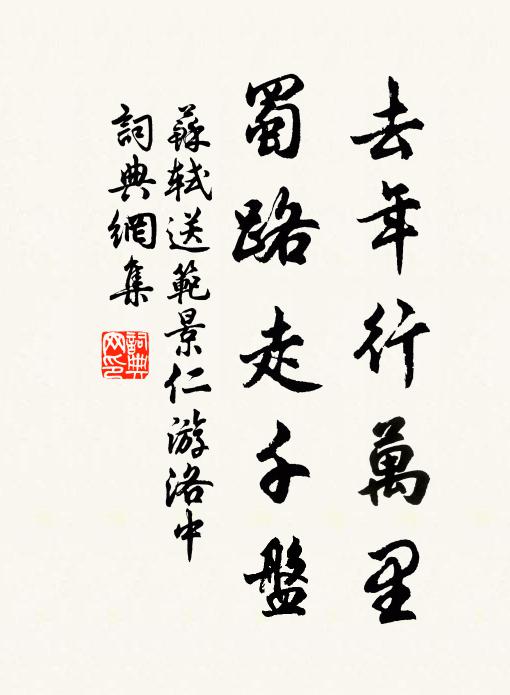 去年行萬里
蜀路走千盤
蘇軾送範景仁游洛中
詞典網集
詞典网印